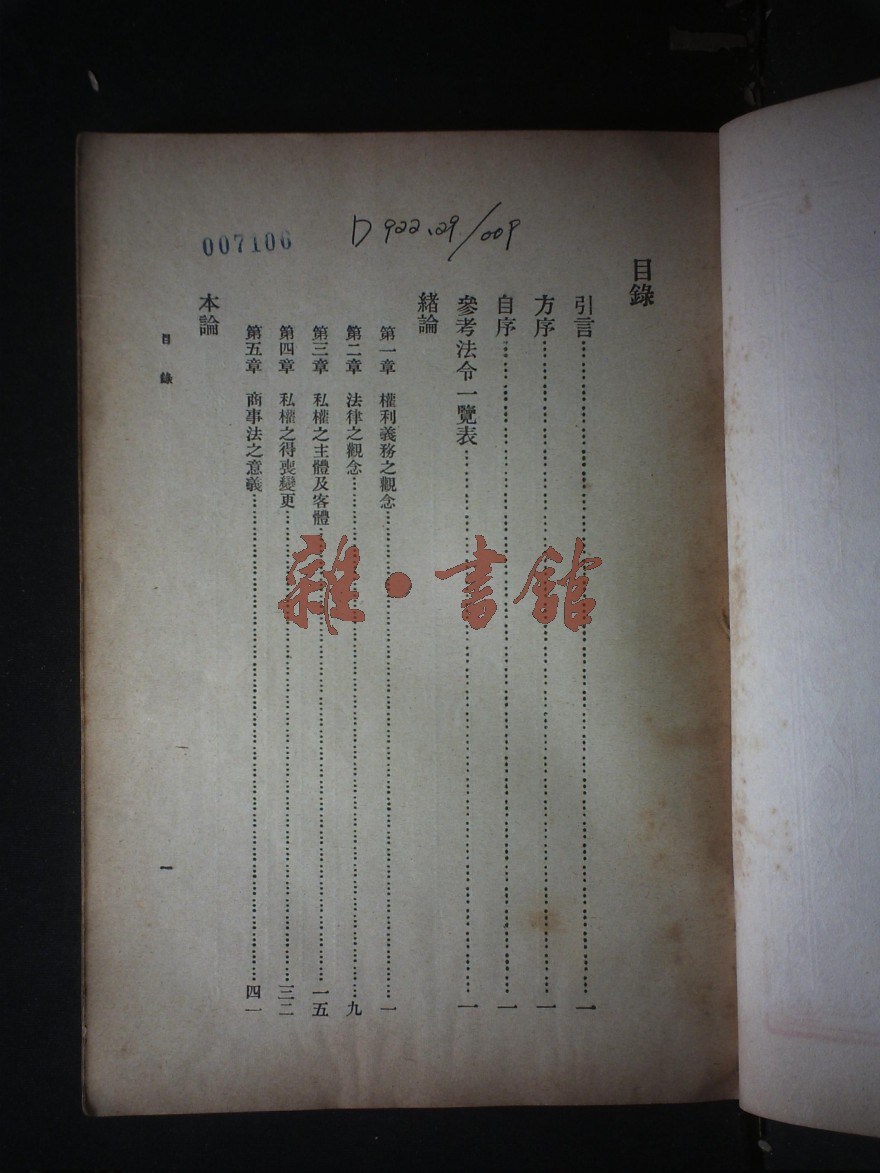 007106
D922.29/009
目錄
引言……一
方序……一
自序……一
參考法令一覽表……一
緒論
第一章 權利義務之觀念……一
第二章 法律之觀念……九
第三章 私權之主體及客體……一五
第四章 私權之得喪變更……三二
第五章 商事法之意義……四一
本論
目錄
一
雜·書館